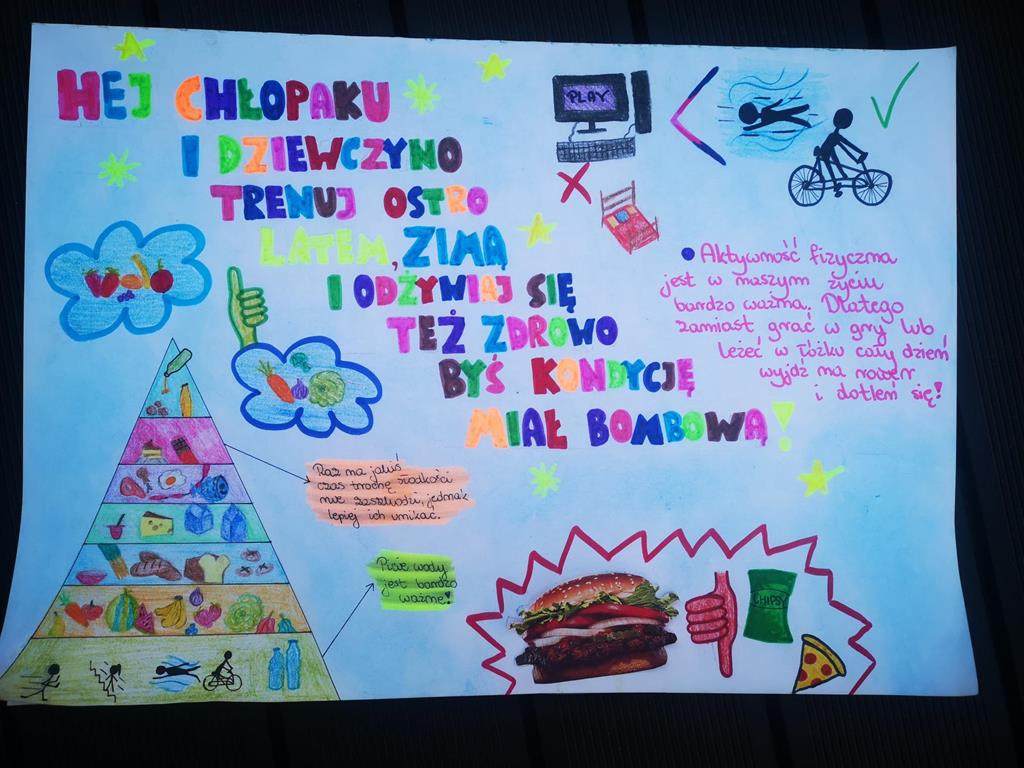 HEJ CHŁOPAKU
I DZIEWCZYNO
TRENUJ OSTRO
LATEM, ZIMĄ
I ODŻYWIAJ SIĘ
TEŻ ZDROWO
BYŚ KONDYCJĘ
MIAŁ BOMBOWĄ!
PLAY
Aktywność fizyczna
jest w naszym życiu
bardzo ważna. Dlatego
zamiast grać w gry lub
leżeć w łóżku cały dzień
wyjdź na rower
i dotleń się!
Raz na jakiś
czas trochę słodkości
nie zaszkodzi, jednak
lepiej ich unikać.
Picie wody
jest bardzo
ważne!
CHIPSY